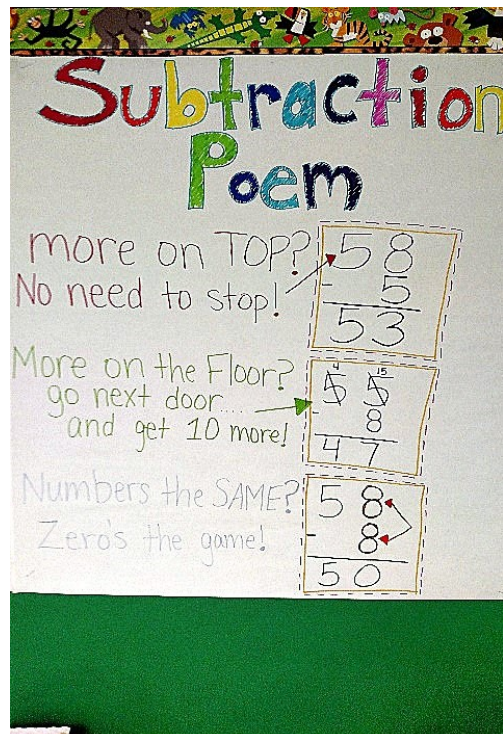 Subtraction
Poem
more on TOP?
No need to stop!
58
- 5
53
More on the Floor?
go next door....
and get 10 more!
4 15
5 5
- 8
47
Numbers the SAME?
Zero's the game!
58
- 8
50